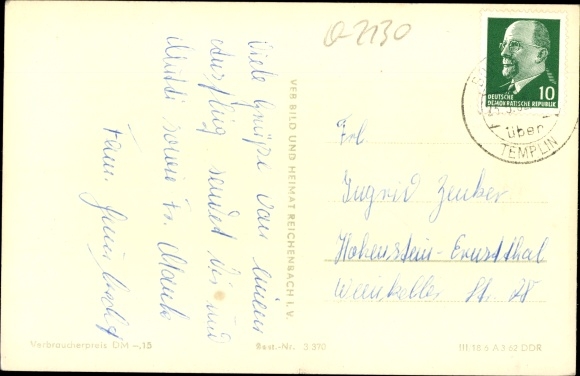 O 2130
10
DEUTSCHE
DEMOKRATISCHE REPUBLIK
über
TEMPLIN
Viele Grüße von einem
Ausflug sendet Dir und
Mutti sowie Fr.
Fam.
VEB BILD UND HEIMAT REICHENBACH I. V.
Frl.
Ingrid Zenker
Hohenstein-Ernstthal
Weinkeller Str. 28
Verbraucherpreis DM -,15
Best.-Nr. 3 370
III.18.6 A 3 62 DDR